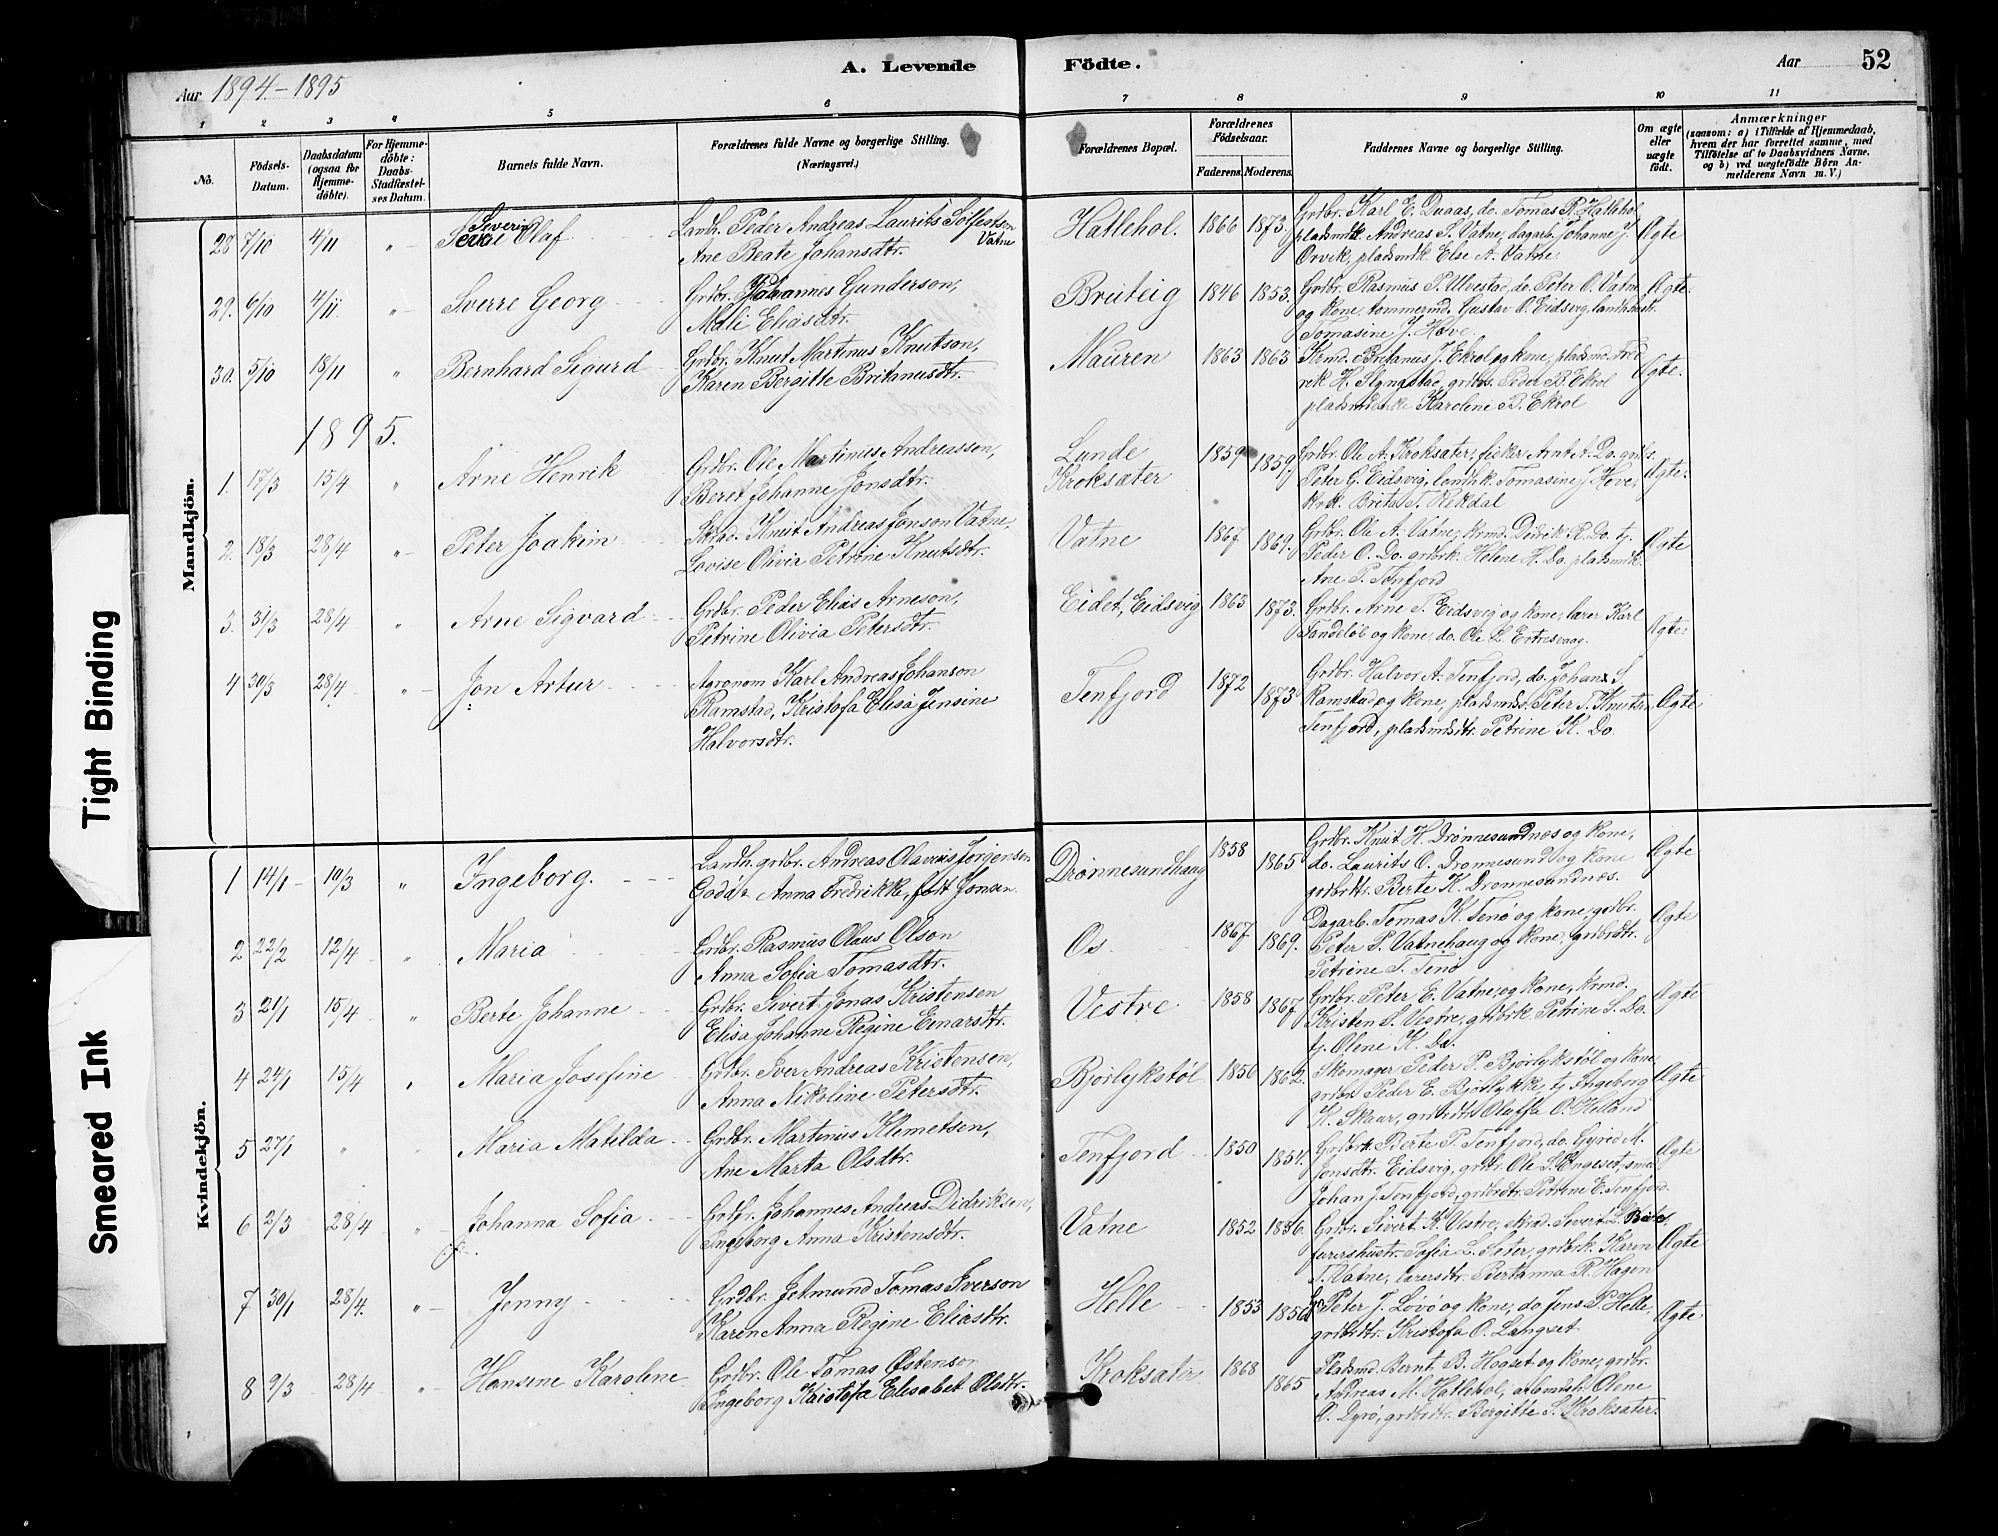 Aar 1894-1895
A. Levende
Födte.
Aar
52
1 2 3 4 5 6 7 8 9 10 11
No.
Födsels-
Datum.
Daabsdatum
(ogsaa for
Hjemme-
døbte).
For Hjemme-
döbte:
Daabs-
Stadfæstel-
ses Datum.
Barnets fulde Navn.
Forældrenes fulde Navne og borgerlige Stilling.
(Næringsvei.)
Forældrenes Bopæl.
Forældrenes
Födselsaar.
Faderens. Moderens.
Faddernes Navne og borgerlige Stilling.
Om ægte
eller
uægte
født.
Anmærkninger
(saasom: a) i Tilfælde af Hjemmedaab,
hvem der har forrettet samme, med
Tilføielse af to Daabsvidners Navne,
og b) ved uægtefödte Börn An-
melderens Navn m. V.)
Mandkjön.
28 7/10 4/11 " Severin Olaf
Landh. Peder Andreas Laurits Solfestson
Vatne
Ane Beate Johansdtr.
Hatlehol. 1866 1873.
Grdbr. Karl E. Duaas, do. Tomas R. Hatlehol
pladsmdk. Andreas S. Vatne, dagarb. Johanne J.
Orvik, pladsmdk. Else A. Vatne.
Ægte
29. 6/10 4/11. " Sverre Georg
Grdbr. Johannes Gunderson,
Mali Eliasdtr.
Bruteig 1846 1853.
Grdbr. Rasmus P. Ulvestad, do. Peter O. Vatne
og kone, tommermd. Gustav O. Eidsvig, landh.hustr.
Tomasine J. Hove.
Ægte.
30. 5/10 18/11 " Bernhard Sigurd
Grdbr. Knut Martinus Knutson,
Karen Bergitte Britanusdtr.
Mauren 1863 1863
Krmd. Britanus J. Ekrol og kone, pladsmd. Fred
rik H. Slyngstad, grdbrs. Peder B. Ekrol
Karoline B. Ekrol
Ægte.
1895.
1. 17/3 15/4 " Arne Henrik
Grdbr. Ole Martinus Andreassen,
Beret Johanne Jonsdtr.
Lunde
Kroksæter
1859 1859.
Grdbr. Ole A. Kroksæter, fisker Arnt A. Do. grdbs.
Peter G. Eidsvig, landhk. Tomasine J. Hove,
Brita T. Rekdal
Ægte.
2. 18/3 28/4 " Peter Joakim
Skrad. Knut Andreas Jonson Vatne,
Lovise Olivia Petrine Knutsdtr.
Vatne 1867 1869.
Grdbr. Ole A. Vatne, krmd. Didrik R. Do. tj.
Peder O. Do. grdbrk. Helene H. Do. pladsmdk.
Ane P. Tenfjord
Ægte
3. 31/3 28/4 " Arne Sigvard
Grdbr. Peder Elias Arneson,
Petrine Olivia Petersdtr.
Eidet, Eidsvig 1863 1873.
Grdbr. Arne T. Eidsvig og kone, lærer Karl
Tandeløb og kone, do. Ole L. Ertresvaag.
Ægte.
4 30/3 28/4 " Jon Artur
Agronom Karl Andreas Johanson
Ramstad, Kristofa Elisa Jensine
Halvorsdtr.
Tenfjord 1872 1873
Grdbr. Halvor A. Tenfjord, do. Johan S.
Ramstad og kone, pladsmds. Peter T. Knutsn.
Tenfjord, pladsmdsdtr. Petrine K. Do.
Ægte
Kvindekjön.
1 14/1 10/3 " Ingeborg.
Landh. grdbr. Andreas Olavus Jørgensen
Godø & Anna Fredrikke, født Jonsen.
Drønnesundhaug 1858 1865
Grdbr. Knut H. Drønnesundnæs og kone,
do. Laurits O. Drønnesund og kone
grdbrdtr. Berte K. Drønnesundnæs.
Ægte
2 22/2 12/4 " Maria
Grdbr. Rasmus Olaus Olson
Anna Sofia Tomasdtr.
Os. 1867 1869.
Dagarb. Tomas K. Tenø og kone, grdbr.
Peter P. Vatnehaug og kone, grdbrdtr.
Petrine T. Tenø
Ægte
3 21/1 15/4 " Berte Johanne
Grdbr. Sivert Jonas Kristensen
Elisa Johanne Regine Einarsdtr.
Vestre 1858 1867
Grdbr. Peter E. Vatne og kone, krmd.
Kristen S. Vestre, grdbrk. Petrine S. Do.
tj. Olene K. Do.
Ægte
4 24/1 15/4 " Maria Josefine
Grdbr. Iver Andreas Kristensen,
Anna Nikoline Petersdtr.
Bjørlykstøl 1856 1862.
Skomager Peder P. Bjørlykstøl og kone,
grdbr. Peder E. Bjørlykke, tj. Ingeborg
K. Skaar, grdbrdtr. Oluffa O. Helland
Ægte
5 27/1 " " Maria Matilda
Grdbr. Martinus Klemetsen,
Ane Marta Olsdtr.
Tenfjord 1850 1854.
Grdbrk. Berte P. Tenfjord, do. Gyrid M.
Jonsdtr. Eidsvig, grdbr. Ole S. Engeset, smed
Johan J. Tenfjord, grdbrdtr. Petrine E. Tenfjord.
Ægte
6 2/3 28/4 " Johanna Sofia
Grdbr. Johannes Andreas Didriksen,
Ingeborg Anna Kristensdtr.
Vatne 1852 1856.
Grdbr. Sivert K. Vestre, skrad. Sivert L.
Sofia L. Sæter, grdbrk. Karen
T. Vatne, lærersdtr. Bertanna R. Hagen
Ægte
7 30/1 28/4. " Jenny
Grdbr. Jetmund Tomas Iverson
Karen Anna Regine Eliasdtr.
Helle 1853 1856
Peter J. Løvø og kone, do Jens P. Helle,
grdbrdtr. Kristofa O. Langset
Ægte
8 9/3 28/4 " Hansine Karoline
Grdbr. Ole Tomas Østenson
Ingeborg Kristofa Elisabet Olsdtr.
Kroksæter 1868 1865
Pladsmd. Bernt B. Haaset og kone, grdbr.
Andreas M. Hatlehol, Olene
O. Dyrø, grdbrdtr. Bergitte S. Kroksæter.
Tight Binding
Smeared Ink